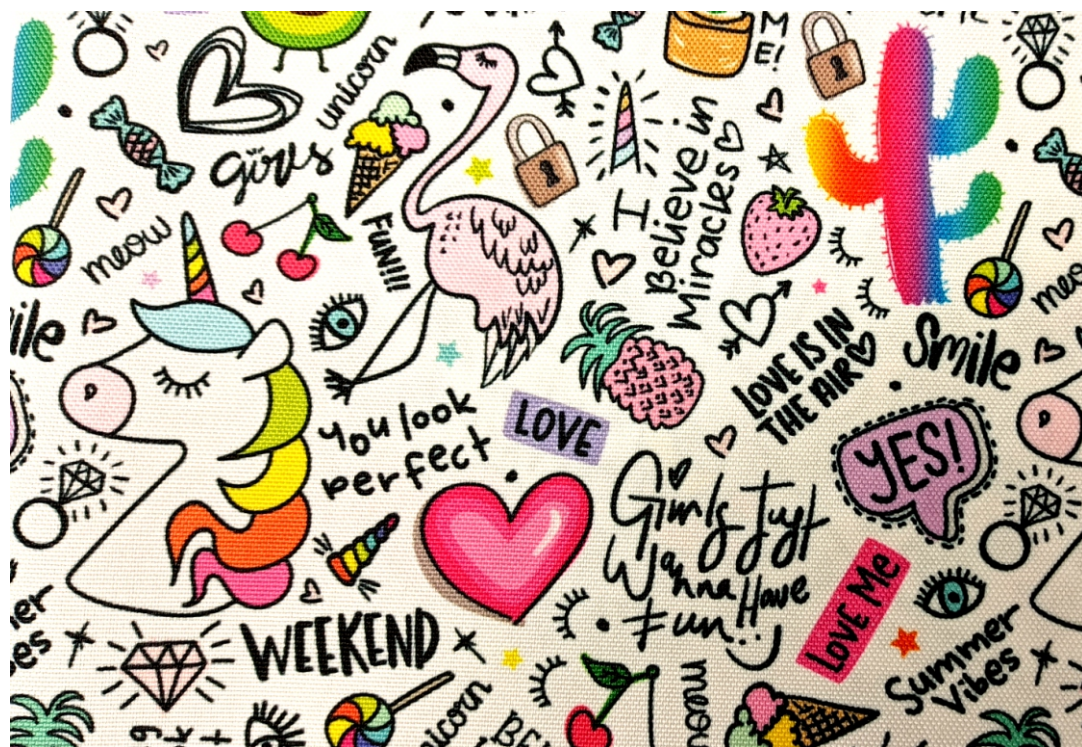 M
E!
unicorn
girls
I
Believe in
Miracles
meow
FUN!!!
meow
smile
LOVE IS IN
THE AIR
Smile
You look
perfect
LOVE
YES!
Girls Just
Wanna Have
Fun!!
LOVE ME
WEEKEND
Summer
Vibes
unicorn
meow